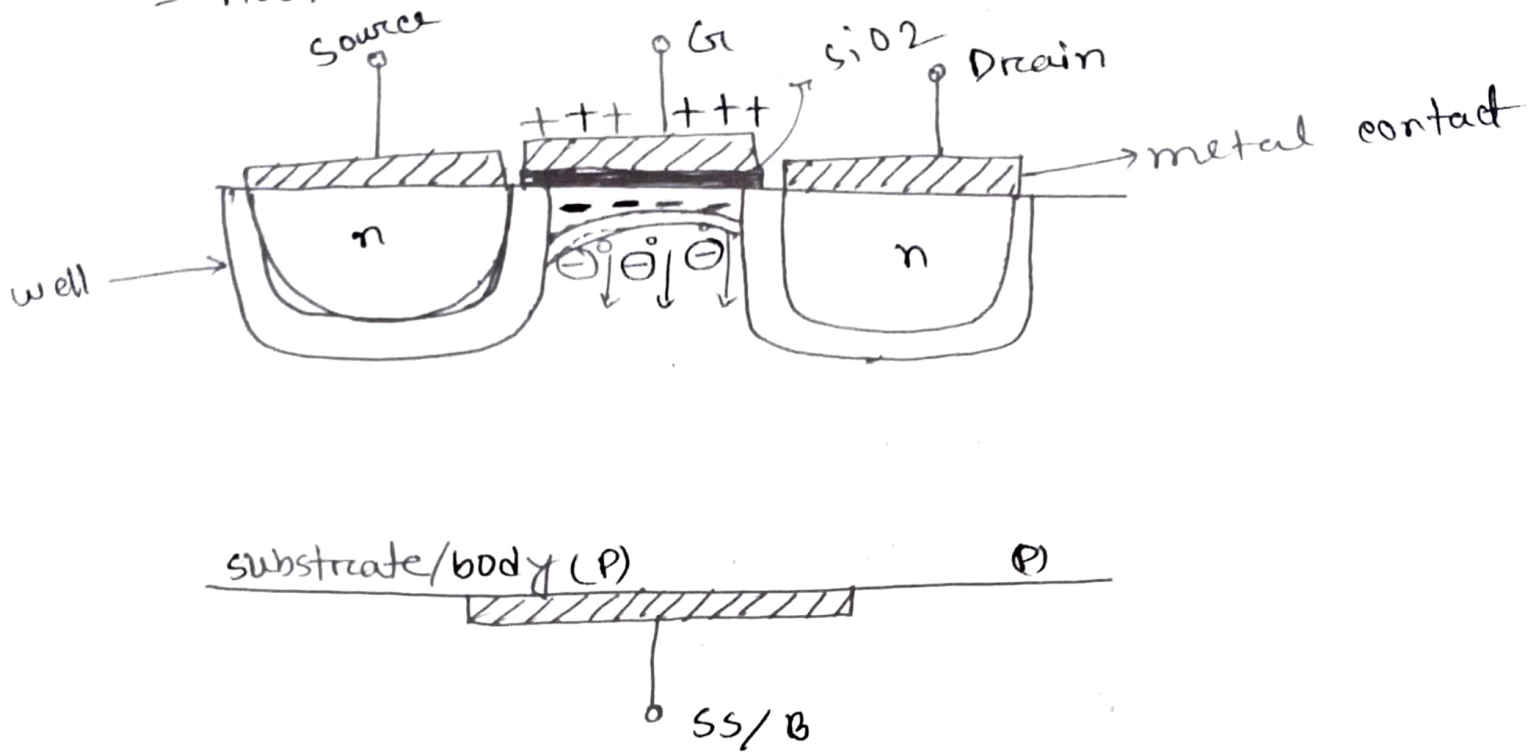 Source
G
SiO2
Drain
+ + + + + +
metal contact
n
n
well
substrate/body (P)
(P)
SS/B